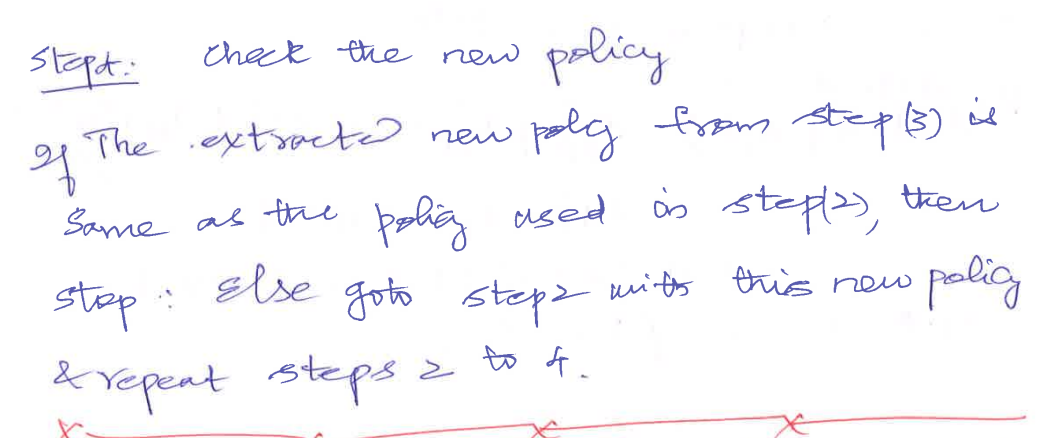 Step4: check the new policy
If The extracted new polcy from step(3) is
Same as the policy used in step(2), then
stop : Else goto step2 with this new policy
& repeat steps 2 to 4.